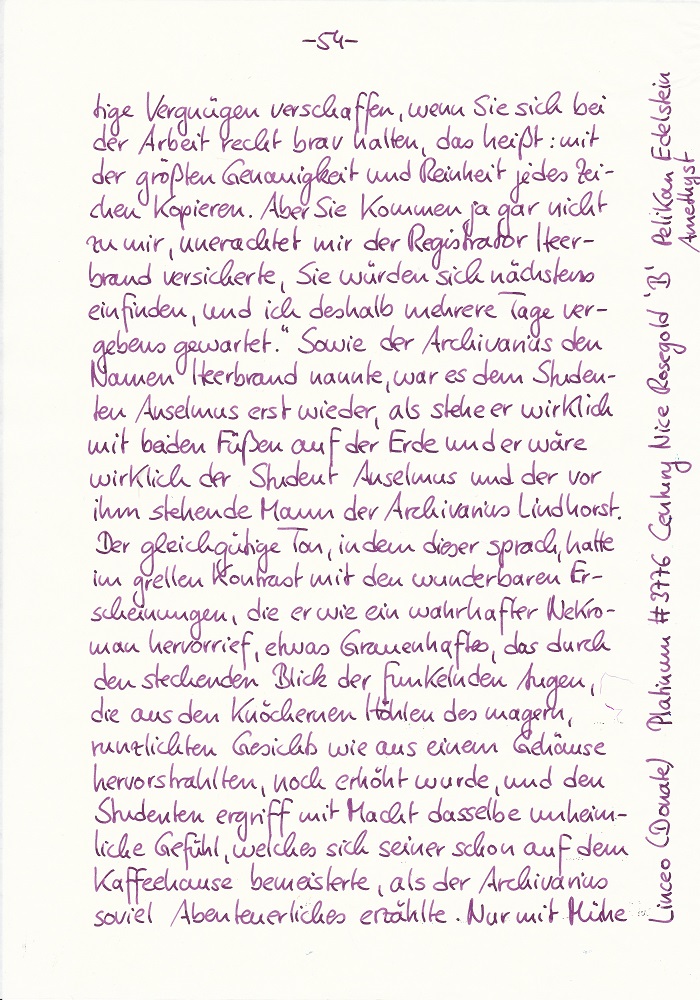 -54-
tige Vergnügen verschaffen, wenn Sie sich bei
der Arbeit recht brav halten, das heißt: mit
der größten Genauigkeit und Reinheit jedes Zei-
chen Kopieren. Aber Sie Kommen ja gar nicht
zu mir, unerachtet mir der Registrator Heer-
brand versicherte, Sie würden sich nächstens
einfinden, und ich deshalb mehrere Tage ver-
gebens gewartet." Sowie der Archivarius den
Namen Heerbrand nannte, war es dem Studen-
ten Anselmus erst wieder, als stehe er wirklich
mit beiden Füßen auf der Erde und er wäre
wirklich der Student Anselmus und der vor
ihm stehende Mann der Archivarius Lindhorst.
Der gleichgütige Ton, in dem dieser sprach, hatte
im grellen Kontrast mit den wunderbaren Er-
scheinungen, die er wie ein wahrhafter Nekro-
man hervorrief, etwas Grauenhaftes, das durch
den stechenden Blick der funkelnden Augen,
die aus den Knöchernen Höhlen des magern,
runzlichten Gesichts wie aus einem Gehäuse
hervorstrahlten, noch erhöht wurde, und den
Studenten ergriff mit Macht dasselbe unheim-
liche Gefühl, welches sich seiner schon auf dem
Kaffeehause bemeisterte, als der Archivarius
soviel Abenteuerliches erzählte. Nur mit Mühe
Linceo (Donate) Platinum #3776 Century Nice Rosegold 'B' Pelikan Edelstein
Amethyst